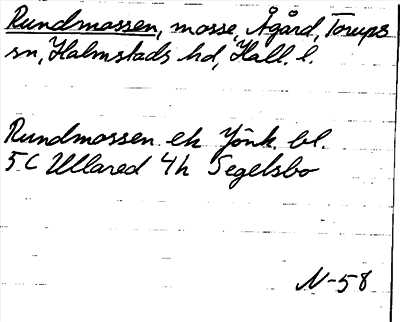 Rundmossen, mosse, Ågård, Torups
sn, Halmstads hd, Hall. l.
Rundmossen ek Jönk. bl.
5 C Ullared 4h Segelsbo
N-58